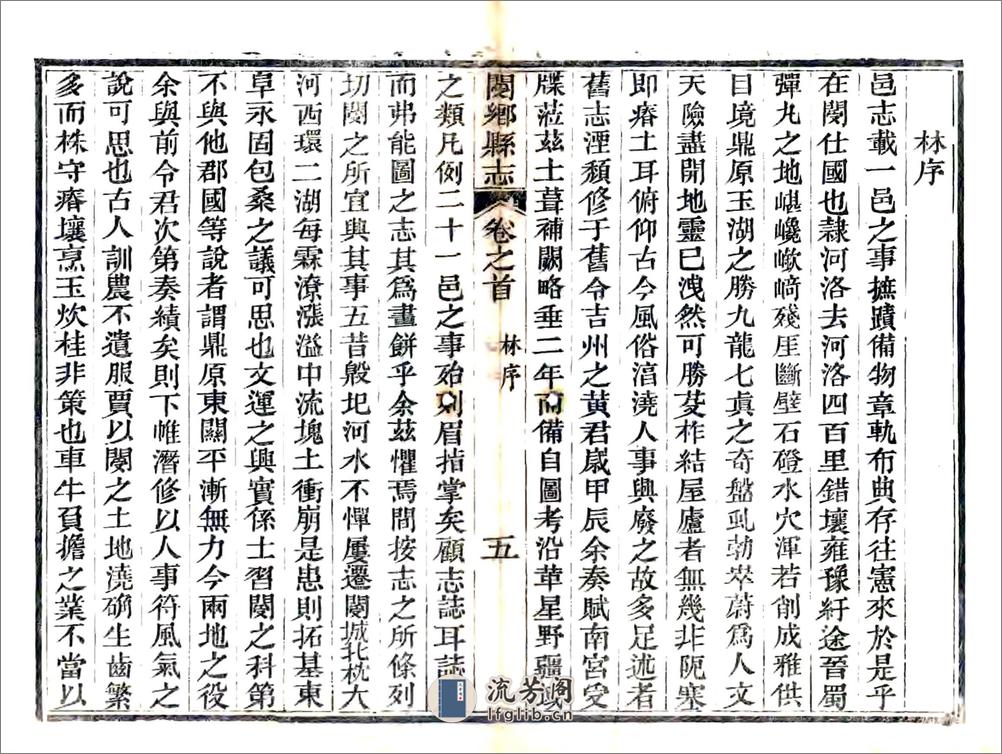 林序
邑志載一邑之事摭蹟備物章軌布典存往憲來於是乎
在閿仕國也隷河洛去河洛四百里錯壤雍豫紆途晉蜀
彈丸之地嵁巉嶔﨑殘厓斷壁石磴水穴渾若削成雅供
目境鼎原玉湖之勝九龍七眞之奇盤虬勃萃蔚爲人文
天險盡開地靈已洩然可勝芟柞結屋廬者無幾非阨塞
即瘠土耳俯仰古今風俗淯澆人事興廢之故多足述者
舊志湮頽修于舊令吉州之黃君歲甲辰余奏賦南宮受
牒蒞茲土葺補闕略垂二年而備自圖考沿革星野疆域
閿鄉縣志 卷之首 林序 五
之類凡例二十一邑之事始列眉指掌矣顧志誌耳誌
而弗能圖之志其爲畫餅乎余茲懼焉間按志之所條列
切閿之所宜興其事五昔殷圯河水不憚屢遷閿城北枕大
河西環二湖每霖潦漲溢中流塊土衝崩是患則拓基東
阜永固包桑之議可思也文運之興實係士習閿之科第
不與他郡國等說者謂鼎原東關平漸無力今兩地之役
余與前令君次第奏績矣則下帷濳修以人事符風氣之
說可思也古人訓農不遺服賈以閿之土地澆确生齒繁
多而株守瘠壤烹玉炊桂非策也車牛負擔之業不當以
流芳阁
lfglib.cn